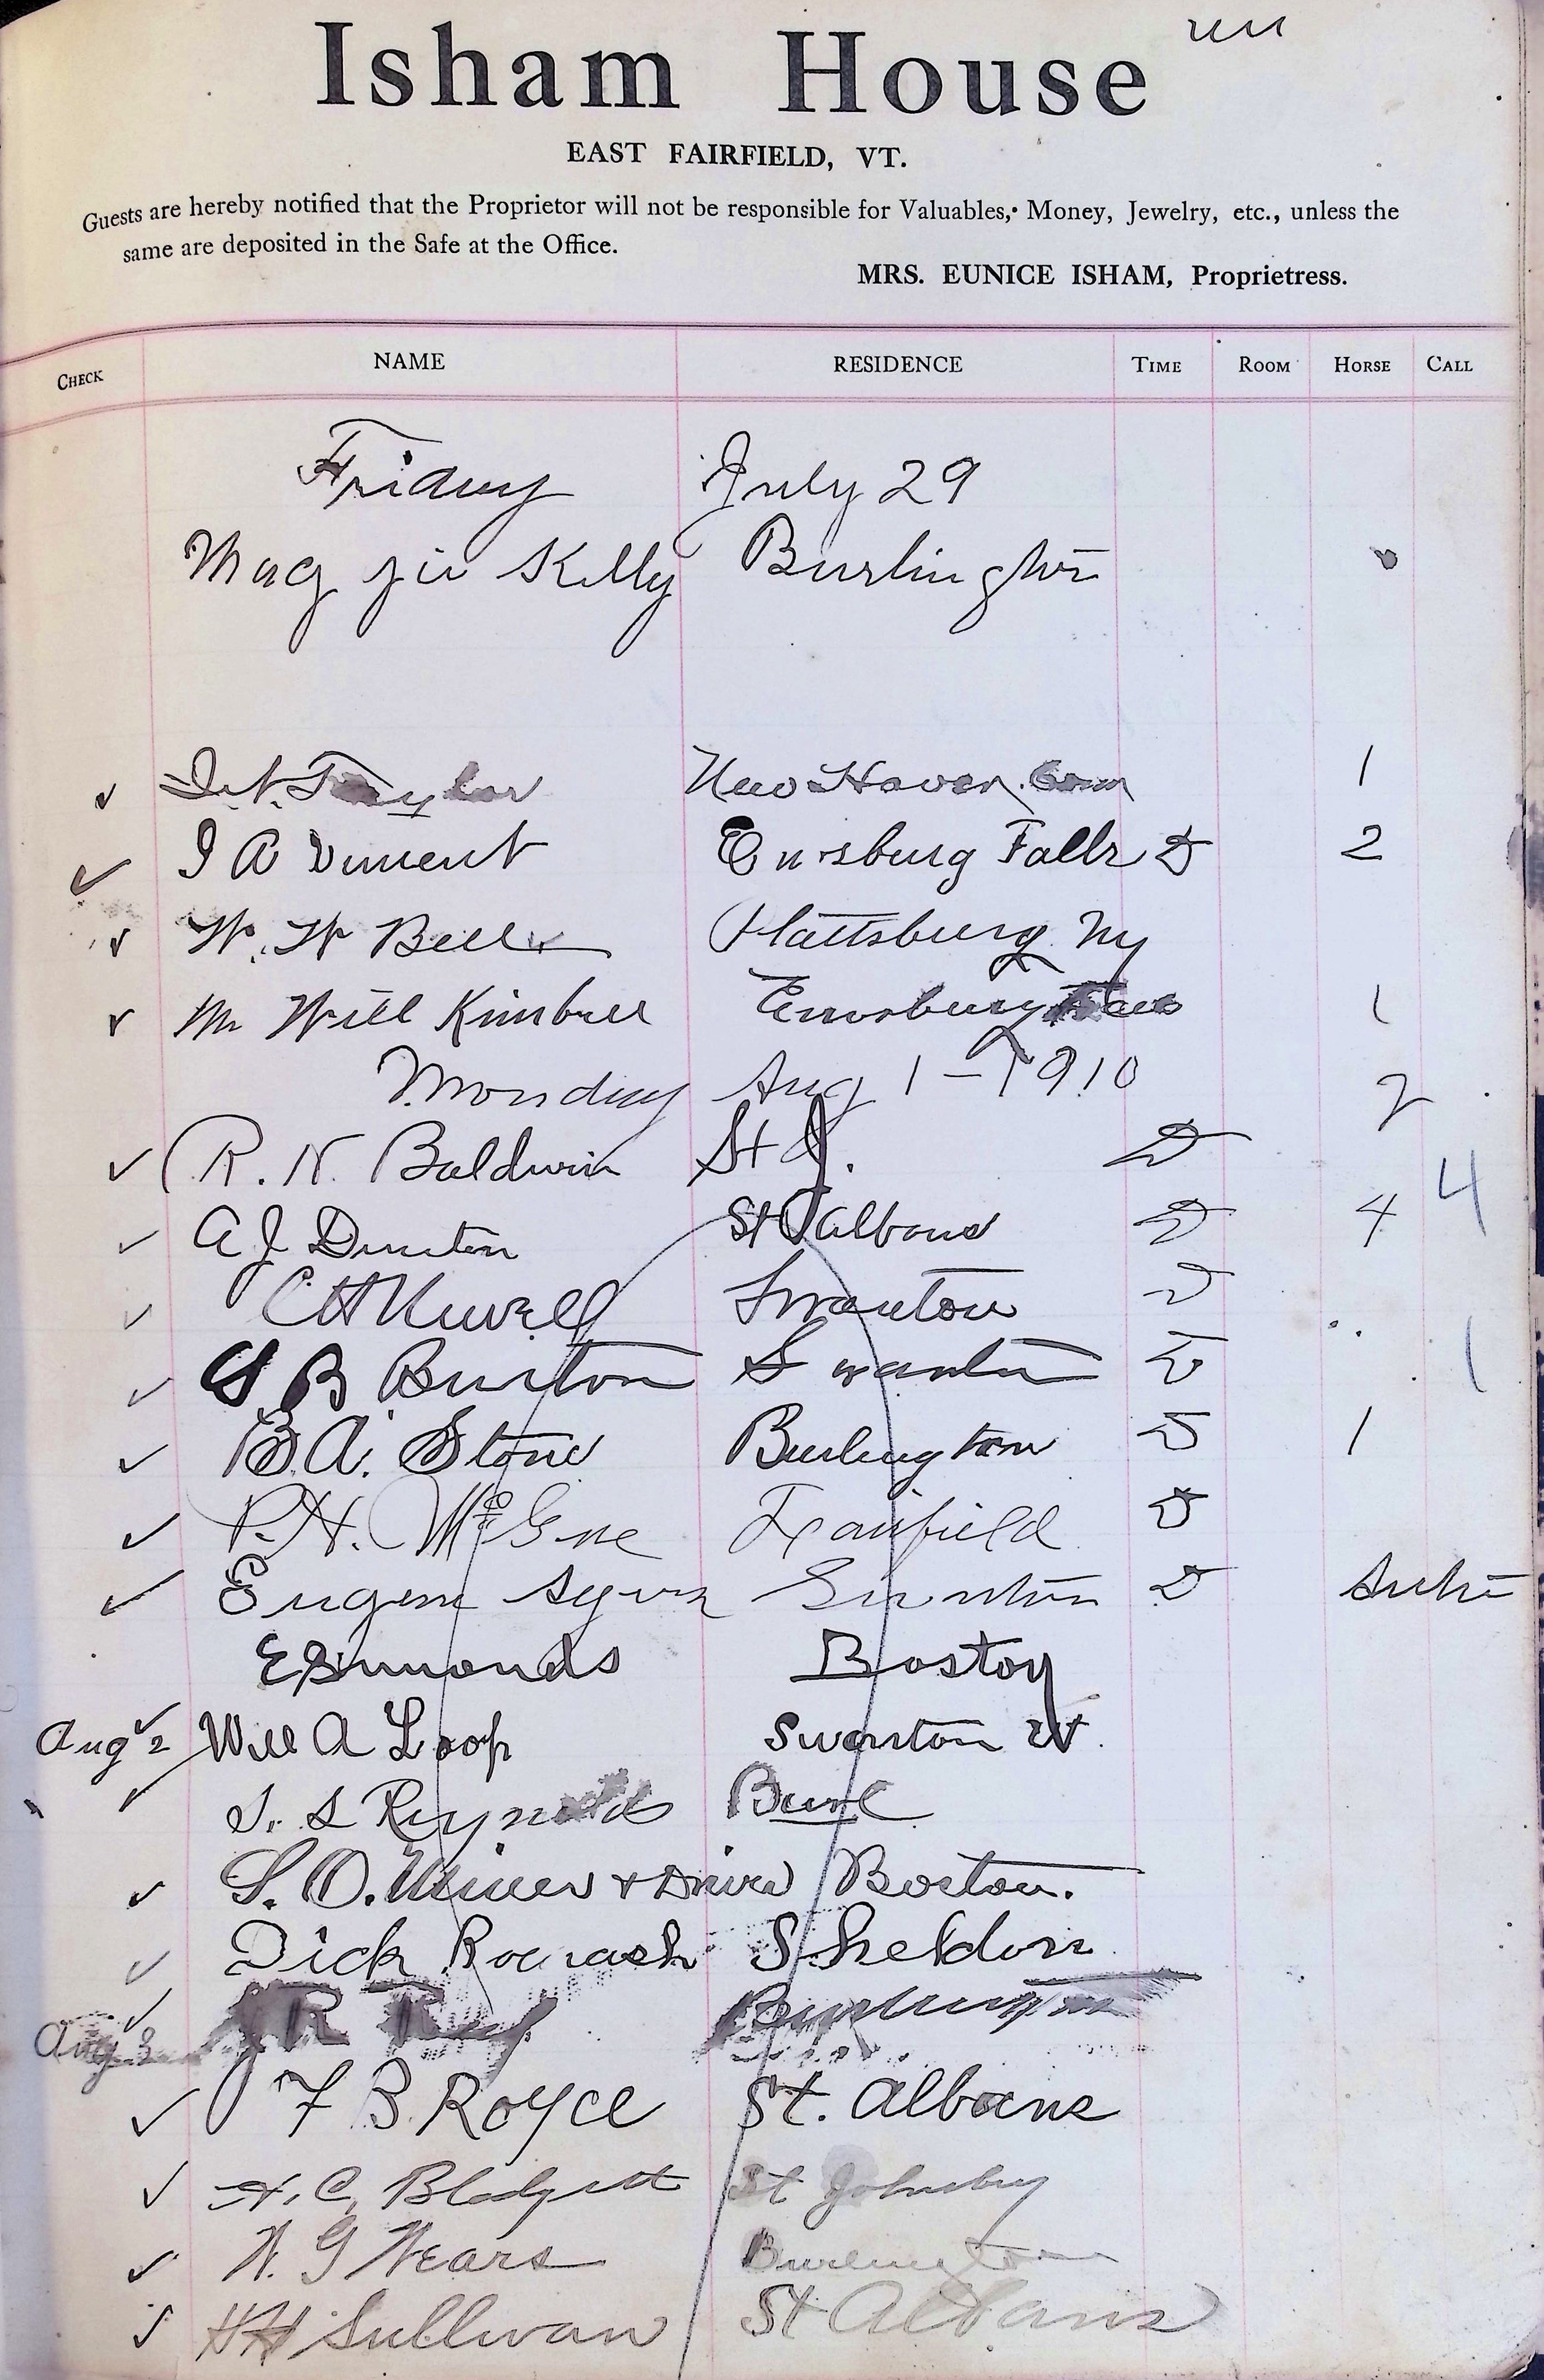 Isham House
EAST FAIRFIELD, VT.
Guests are hereby notified that the Proprietor will not be responsible for Valuables, Money, Jewelry, etc., unless the
same are deposited in the Safe at the Office.
MRS. EUNICE ISHAM, Proprietress.
CHECK NAME RESIDENCE TIME ROOM HORSE CALL
Friday July 29
Kelly Burlington
Taylor New Haven. Conn 1
I A Enosburg Falls D 2
W. H Bell Plattsburg Ny
Mr Will Kimball Enosburg Falls 1
Monday Aug 1 - 1910 2
R. N. Baldwin St J. D
A J Dunton St Albans D 4 4
C H Newell Swanton D
B Burton Swanton D 1
B. A. Stone Burlington D 1
P. H. McGine Fairfield D
Eugene Swanton D
E Simmonds Boston
Aug 2 Will A Loop Swanton Vt.
S Reynolds Burl
S. O. Miner + Driver Boston.
Dick S Sheldon
Aug 3 R
F B. Royce St. Albans
H. C. Blodgett St Johnsbury
N. G Wears Burlington
H H Sullivan St Albans